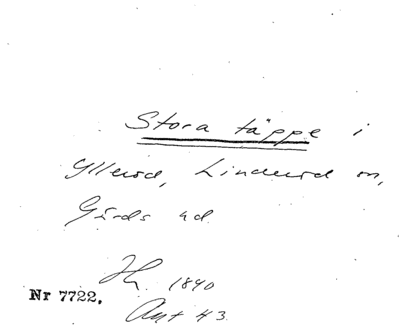 Stora täppe i
Yllerød, Linderød sn,
Gärds hd
Hz. 1840
Nr 7722.
Ant 43